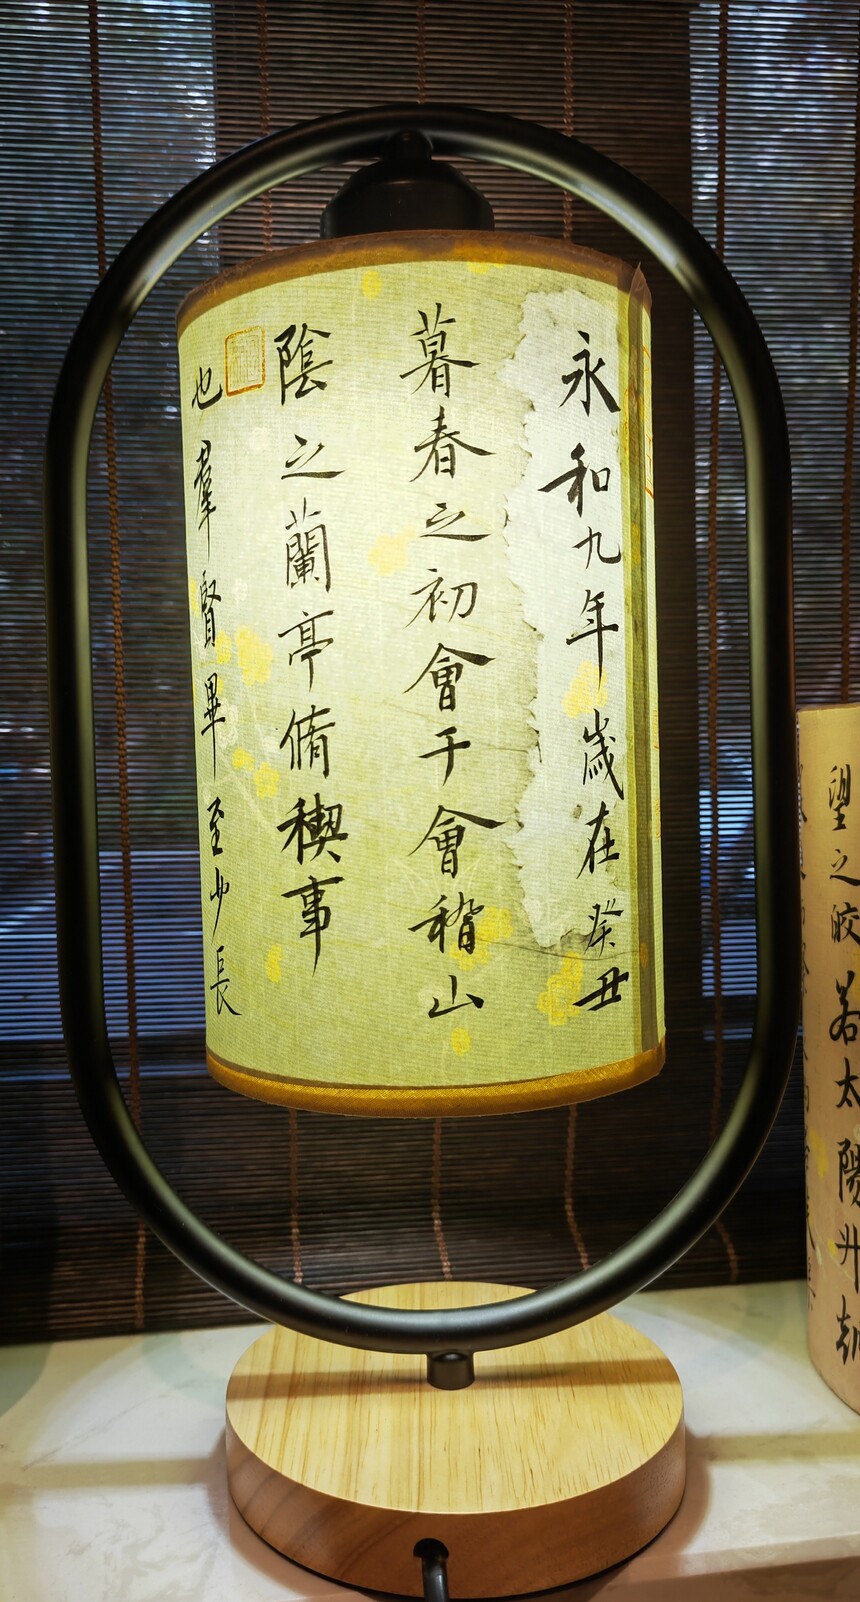 永和九年歲在癸丑
暮春之初會于會稽山
陰之蘭亭脩稧事
也羣賢畢至少長
望之皎若太陽升